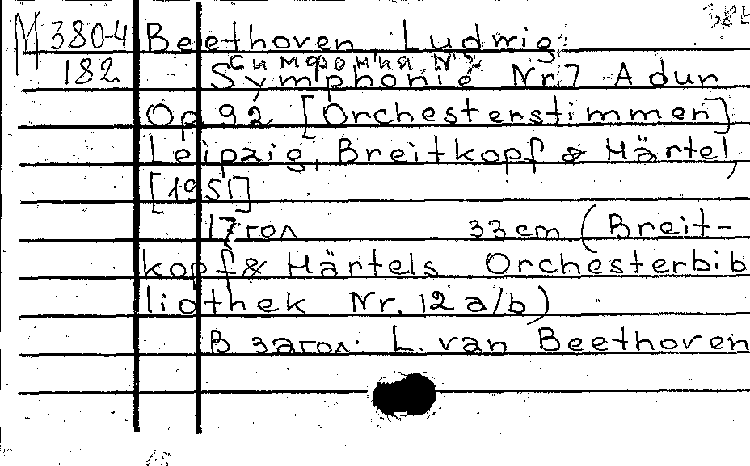 М 380-4 Beethoven, Ludwig.
182 Симфония №7
Symphonie Nr 7 A dur
Op 92 [Orchesterstimmen]
Leipzig, Breitkopf & Härtel,
[1951]
17 гол 33 cm (Breit-
kopf & Härtels Orchesterbib
liothek Nr. 12 a/b)
В загол: L. van Beethoven